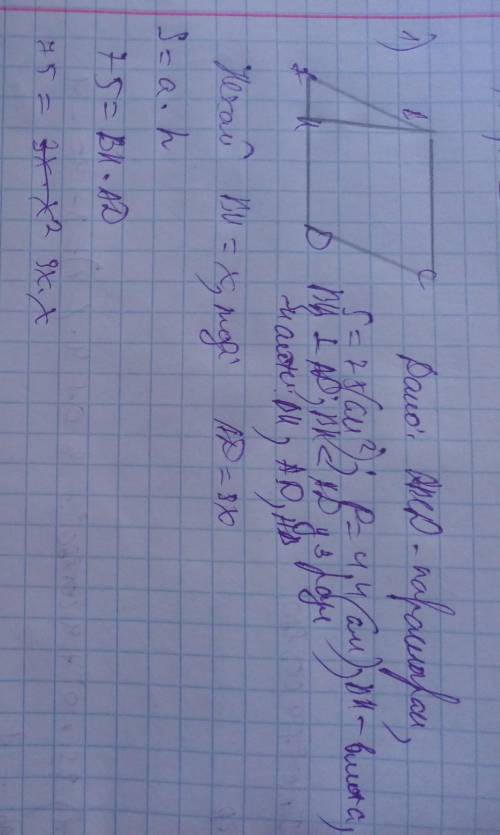 1)
A
B
H
D
C
Дано: ABCD - паралелограм,
S = 75 (см²); P = 4,4 (см); BH - висота,
BH ⊥ AD; BH < AD у 3 рази
Найти: BH, AD, AB
Нехай BH = x, тоді AD = 3x
S = a · h
75 = BH · AD
75 = 3x · x